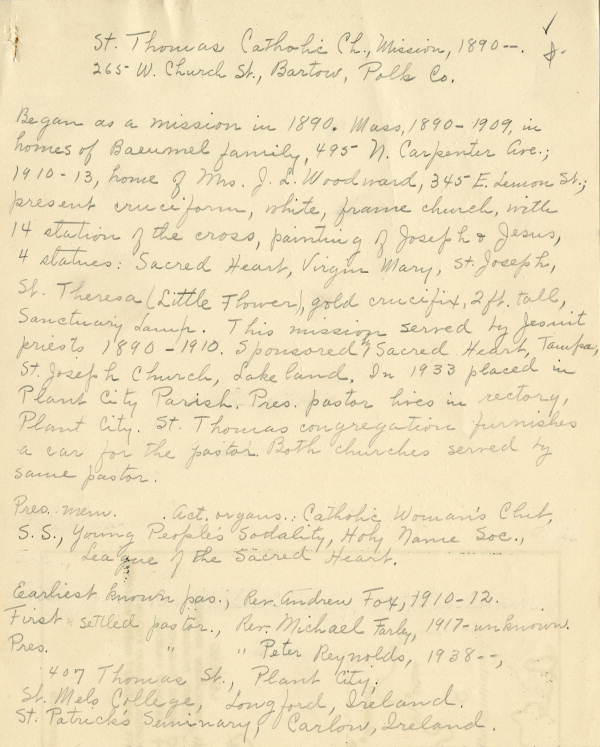 St. Thomas Catholic Ch., Mission, 1890--.
265 W. Church St., Bartow, Polk Co.
Began as a mission in 1890. Mass, 1890-1909, in
homes of Baeumel family, 495 N. Carpenter Ave.;
1910-13, home of Mrs. J. L. Woodward, 345 E. Lemon St.;
present cruciform, white, frame church, with
14 station of the cross, painting of Joseph & Jesus,
4 statues: Sacred Heart, Virgin Mary, St. Joseph,
St. Theresa (Little Flower), gold crucifix, 2 ft. tall,
Sanctuary Lamp. This mission served by Jesuit
priests, 1890-1910. Sponsored by Sacred Heart, Tampa,
St. Joseph Church, Lakeland. In 1933 placed in
Plant City Parish. Pres. pastor lives in rectory,
Plant City. St. Thomas congregation furnishes
a car for the pastor. Both churches served by
same pastor.
Pres. mem. Act. organs.: Catholic Woman's Club,
S.S., Young People's Sodality, Holy Name Soc.,
League of the Sacred Heart.
Earliest known pas., Rev. Andrew Fox, 1910-12.
First settled pastor., Rev. Michael Farley, 1917-unknown.
Pres. " " Peter Reynolds, 1938--,
407 Thomas St., Plant City;
St. Mels College, Longford, Ireland.
St. Patrick's Seminary, Carlow, Ireland.